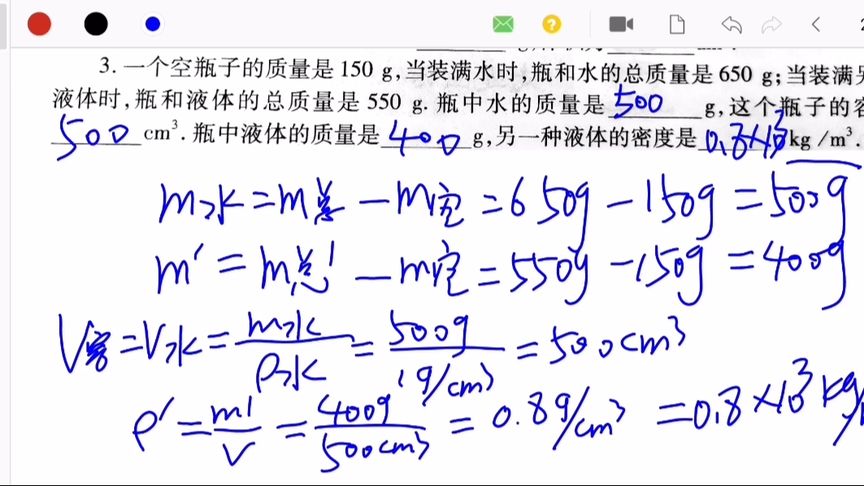 3. 一个空瓶子的质量是 150 g,当装满水时,瓶和水的总质量是 650 g;当装满
液体时,瓶和液体的总质量是 550 g. 瓶中水的质量是 500 g,这个瓶子的容
500 cm³. 瓶中液体的质量是 400 g,另一种液体的密度是 0.8×10³ kg/m³.
m水=m总-m空=650g-150g=500g
m'=m总'-m空=550g-150g=400g
V容=V水=m水/ρ水=500g/1g/cm³=500cm³
ρ'=m'/V=400g/500cm³=0.8g/cm³=0.8×10³kg/